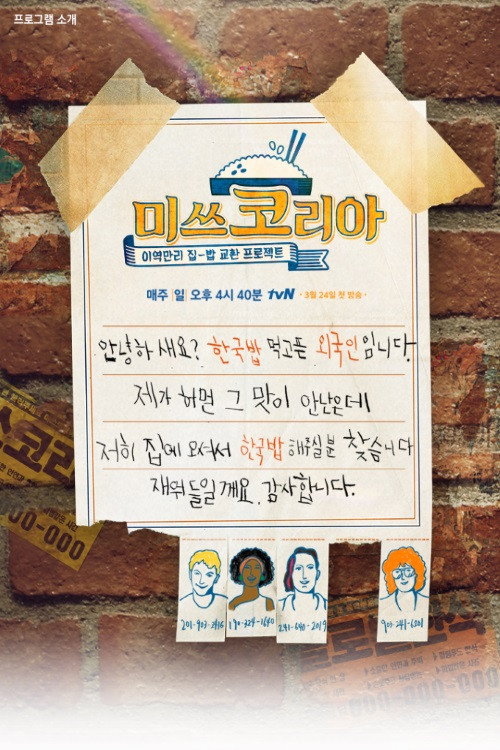 프로그램 소개
미쓰코리아
이역만리 집-밥 교환 프로젝트
매주 일 오후 4시 40분 tvN ·3월 24일 첫 방송·
안녕하새요? 한국밥 먹고픈 외국인입니다.
제가 하면 그 맛이 안난은데
저희 집에 오셔서 한국밥 해주실분 찾습니다
재워들일게요. 감사합니다.
스코리
00-000
190-324-1640
241-640-2019
903-241-6201
00-000